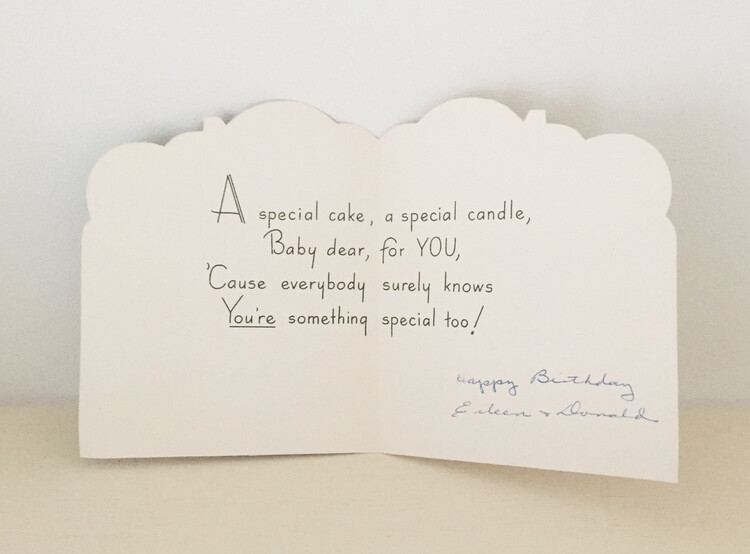 A special cake, a special candle,
Baby dear, for YOU,
'Cause everybody surely knows
You're something special too!
Happy Birthday
Eileen & Donald